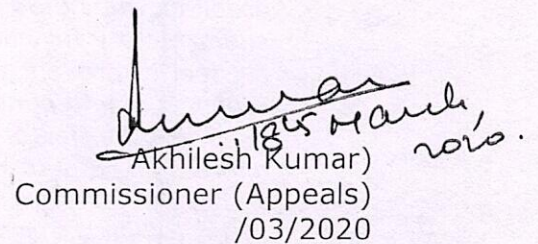 18th March,
2020.
Akhilesh Kumar)
Commissioner (Appeals)
/03/2020